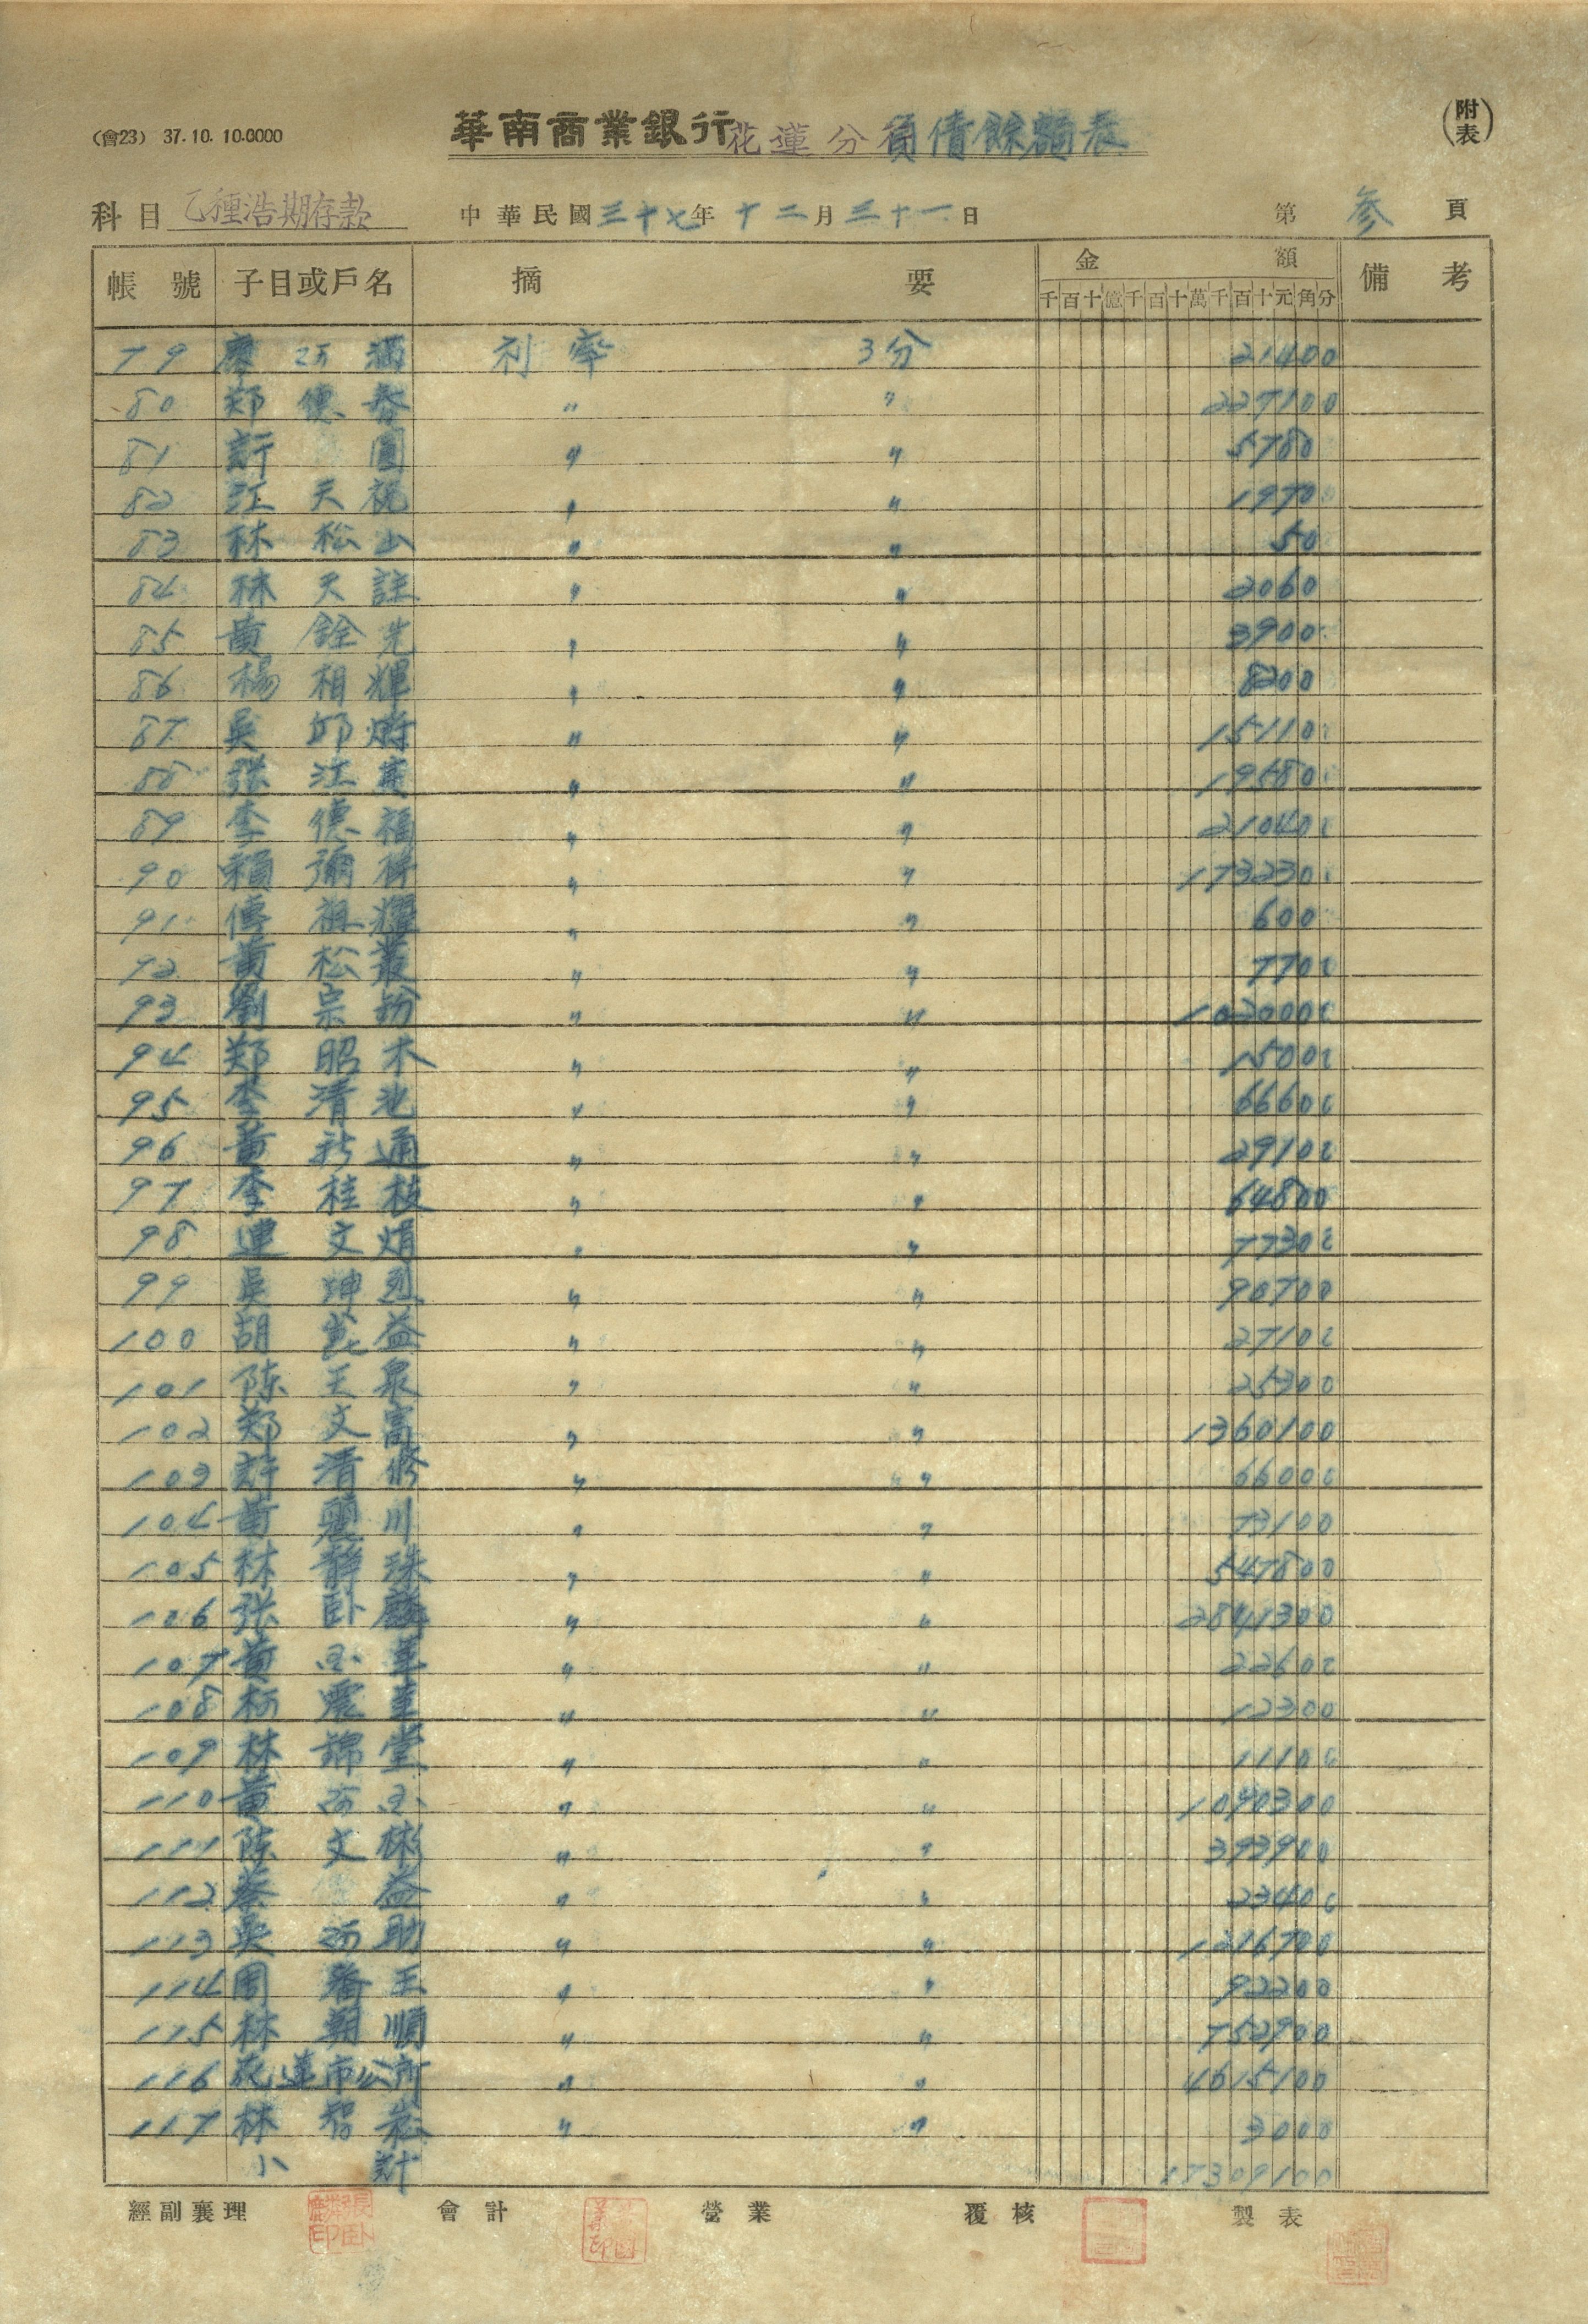 (會23) 37.10.10.0000
華南商業銀行花蓮分負債餘額表
(附表)
科目 乙種活期存款 中華民國三十七年十二月三十一日 第 参 頁
帳號 子目或戶名 摘要 金額 備考
千百十億千百十萬千百十元角分
79 廖 滿 利率 3分 21400
80 郑德春 〃 〃 227100
81 許圓 〃 〃 5780
82 江天祝 〃 〃 19700
83 林松山 〃 〃 50
84 林天註 〃 〃 2060
85 黃銓先 〃 〃 3900
86 楊相輝 〃 〃 8200
87 吳邱 〃 〃 151100
88 张江 〃 〃 195800
89 李德福 〃 〃 210400
90 賴彌 〃 〃 1732300
91 傅祖耀 〃 〃 600
92 黃松叢 〃 〃 7700
93 劉宗 〃 〃 1020000
94 郑昭木 〃 〃 15000
95 李清池 〃 〃 66600
96 黃新通 〃 〃 29100
97 李桂枝 〃 〃 64800
98 連文炳 〃 〃 77300
99 吳坤烈 〃 〃 90700
100 胡崑益 〃 〃 27100
101 陈王泉 〃 〃 25300
102 郑文富 〃 〃 1360100
103 許清修 〃 〃 66000
104 黃麗川 〃 〃 73100
105 林靜珠 〃 〃 547800
106 张卧麟 〃 〃 2841300
107 黃 〃 〃 22600
108 柯震 〃 〃 12300
109 林錦堂 〃 〃 11100
110 黃 〃 〃 1040300
111 陈文彬 〃 〃 393900
112 蔡益 〃 〃 23400
113 吳阿助 〃 〃 1216700
114 周番王 〃 〃 92200
115 林朝順 〃 〃 752900
116 花蓮市公所 〃 〃 4615100
117 林智崧 〃 〃 3000
小計 17309100
經副襄理 會計 營業 覆核 製表